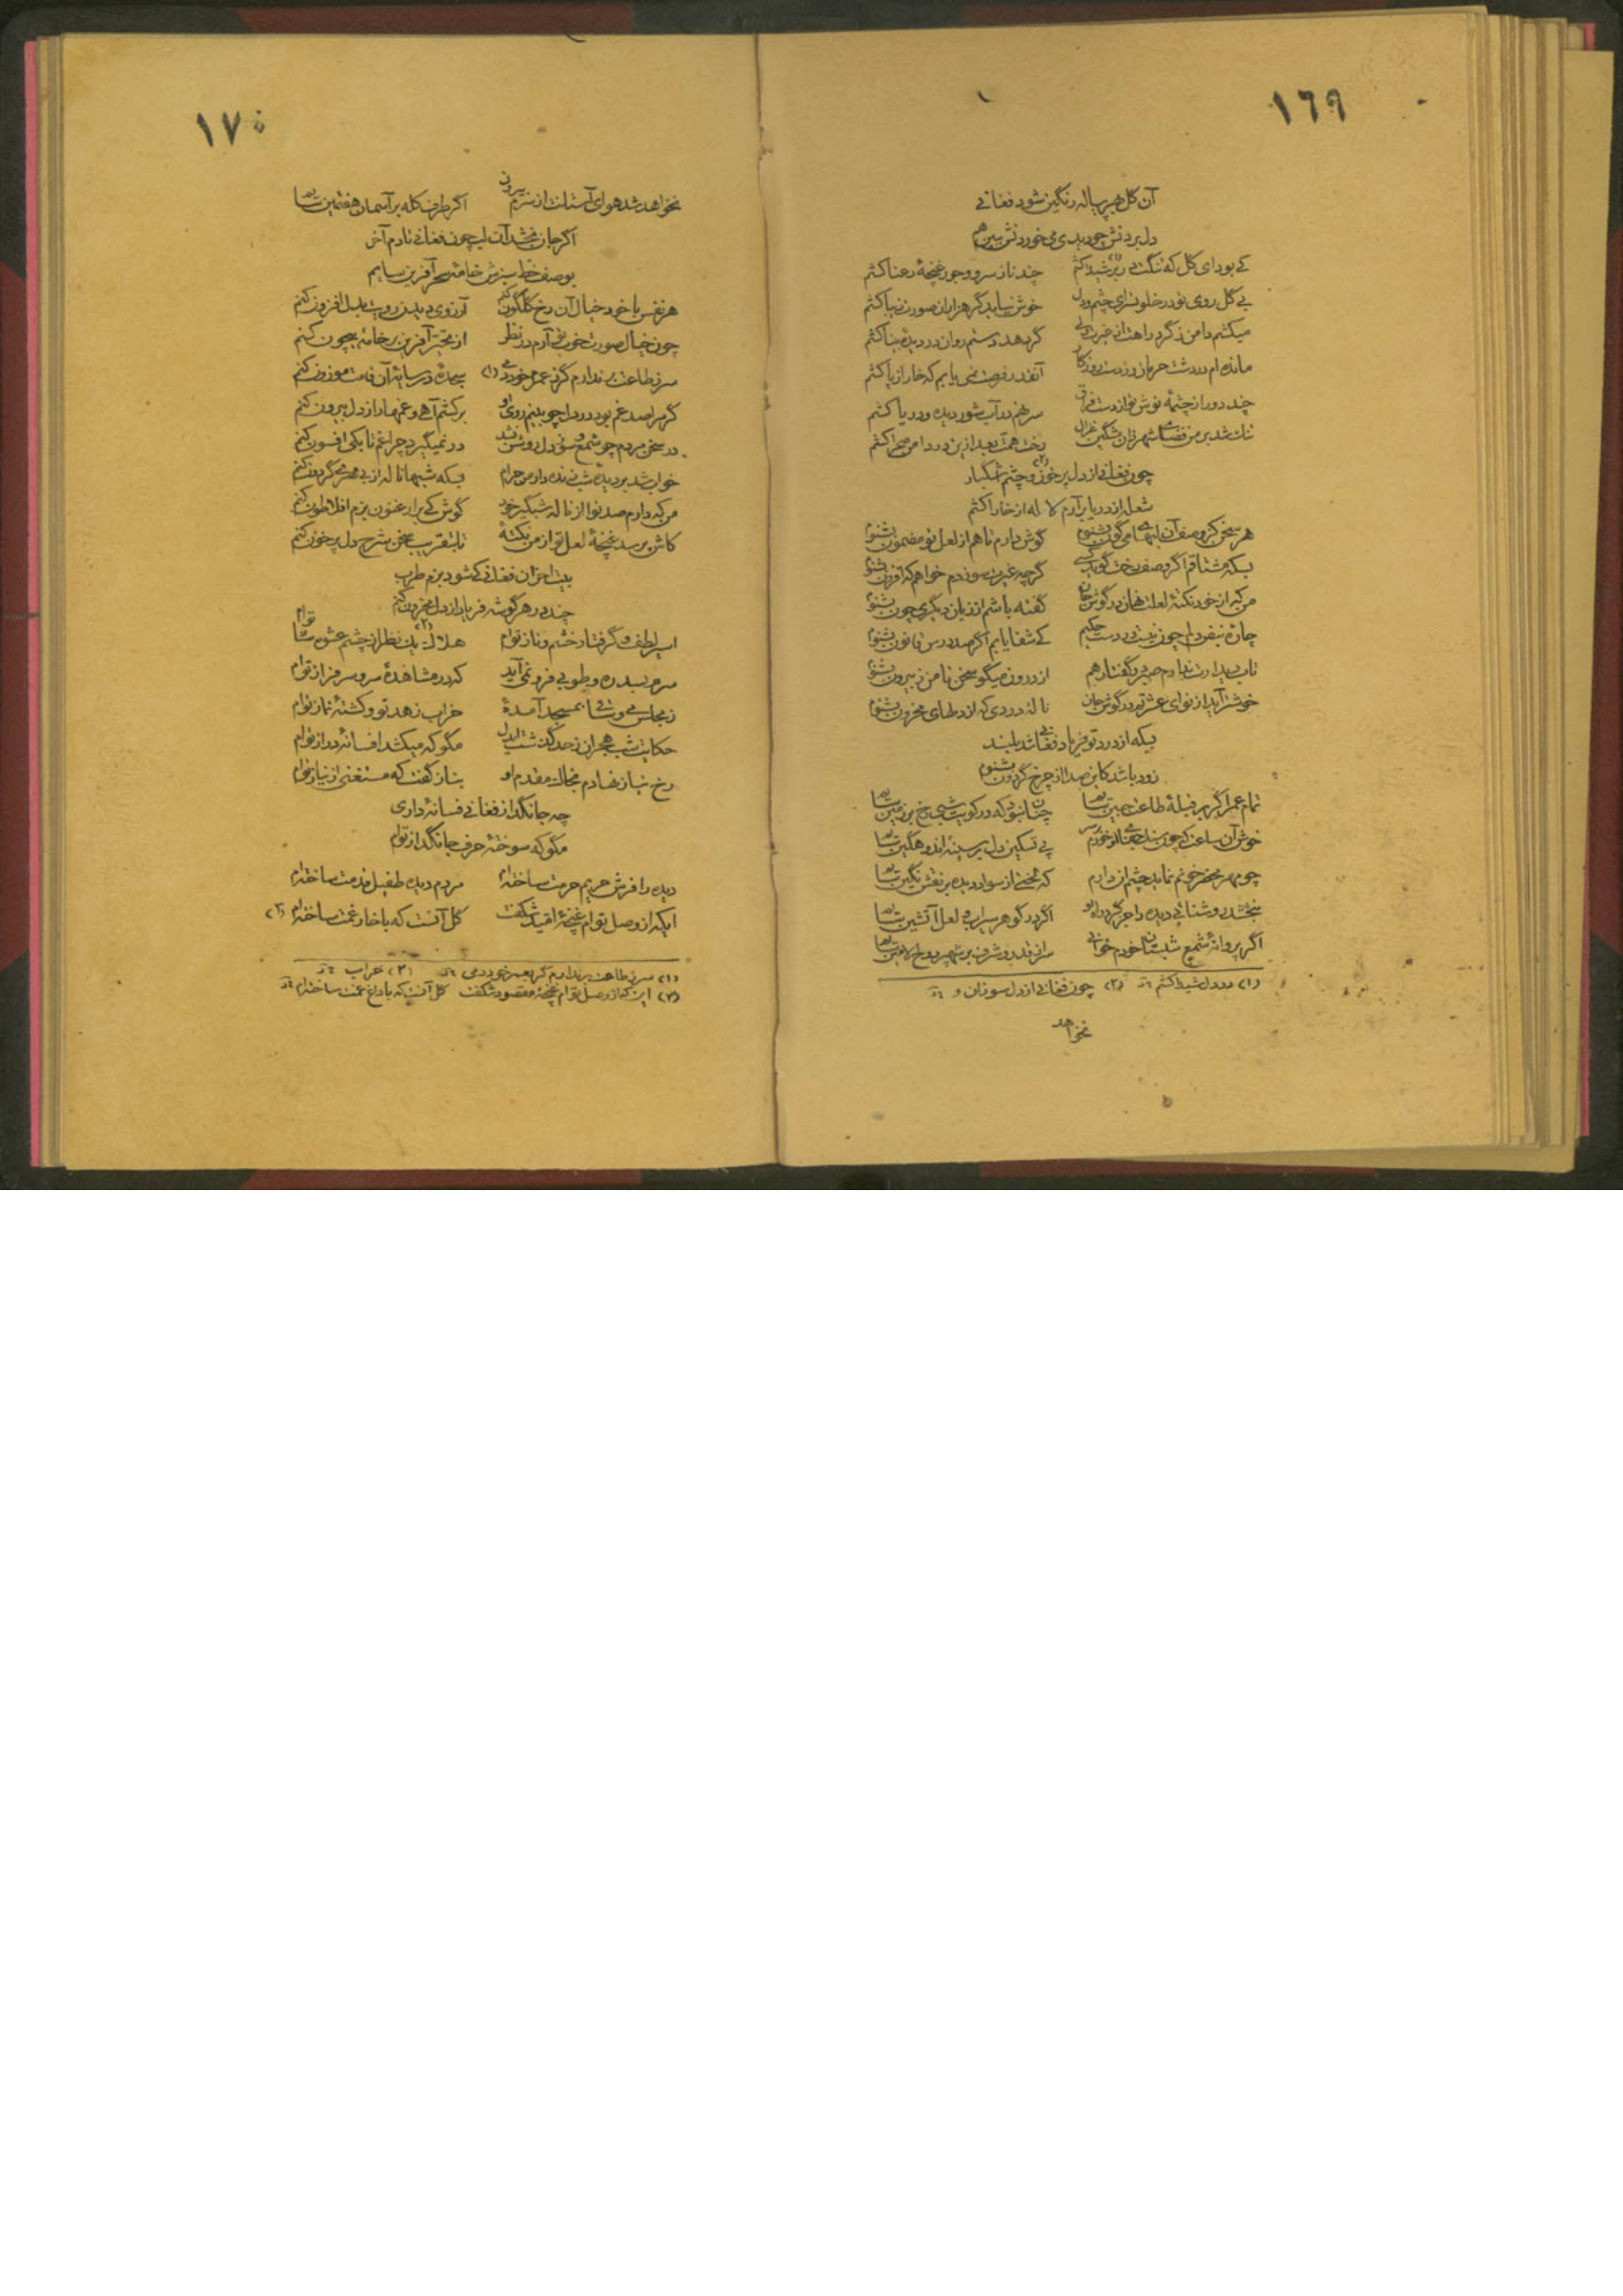 ١٦٩
آن گل هر پیاله رنگین شود فغانی
دل بردنش چو دیدی می خوردنش ببین هم
کی بود ای گل که تنگت در بر شیدا کشم چند ناز سرو و جور غنچهٔ رعنا کشم
بی گل روی تو در خلوتسرای چشم و دل خوش نیاید گر هزاران صورت زیبا کشم
میکشم دامن ز گرد راهت از
مانده ام در دشت حرمان وز دست روزگار آنقدر فرصت نمی یابم که خار از پا کشم
چند دور از چشمهٔ نوش تو از دست فراق سر نهم در آب شور دیده و دریا کشم
تنک شد بر من فضای شهر زان مشکین غزال رخت همت بعد ازین در دامن صحرا کشم
چون فغانی از دل پر خون و چشم اشکبار (٢)
شعله از دریا برآرم لاله از خارا کشم
هر سخن کز وصف آن لبهای میگون بشنوم گوش دارم تا هم از لعل تو مضمون بشنوم
بسکه مشتاقم اگر وصف رخت گوید کسی گرچه غیرت سوزدم خواهم که افزون بشنوم
من که از خود نکتهٔ لعلت نهان در گوش جان گفته باشم از زبان دیگری چون بشنوم
چارهٔ نبض دلم چون نیست در دست حکیم کی شفا یابم اگر صد درس قانون بشنوم
تاب دیدارت ندارم صبر در گفتار هم از درون میگو سخن تا من ز بیرون بشنوم
خوشتر آید از نوای عشرتم در گوش جان نالهٔ دردی که از دلهای محزون بشنوم
بسکه از درد تو فریاد فغانی شد بلند
زود باشد کاین صدا از چرخ گردون بشنوم
تمام عمر اگر بر قبلهٔ طاعت جبین سایم چنان نبود که در کویت شبی رخ بر زمین سایم
خوش آن ساعت که چون پی تسکین دل بر سینهٔ اندوهگین سایم
چو مهر محضر خونم نماید چشم آن دارم که لختی از سواد دیده بر نقش نگین سایم
نبخشد روشنائی دیده را جز گرد راه او اگر در گوهر سیراب و لعل آتشین سایم
اگر پروانهٔ شمع شبستان خودم خوانی سر از قدر و شرف بر شهپر روح الامین سایم
(١) در دل شیدا کشم (٢) چون فغانی از دل سوزان و
نخواهد
١٧٠
نخواهد شد هوای آستانت از سرم بیرون اگر طرف کله بر آسمان هفتمین سایم
اگر جان بخشد آن لب چون فغانی تا دم آخر
بوصف خط سبزش خامهٔ سحر آفرین سایم
هر نفس با خود خیال آن رخ گلگون کنم آرزوی دیدن رویت بدل افزون کنم
چون خیال صورت خوبی آرم در نظر از تحیر آفرین بر خامهٔ بیچون کنم
سر ز طاعت بر ندارم گر عمر خود دمی (١) سجدهٔ در سایهٔ آن قامت موزون کنم
گر مرا صد غم بود در دل چو بینم روی او برکشم آهی و غمها را ز دل بیرون کنم
در سخن مردم چو شمع و سوز دل روشن نشد در نمیگیرد چراغم تا بکی افسون کنم
خواب شد بر دیدهٔ شب زنده دار من حرام بسکه شبها ناله از بی مهری گردون کنم
من که دارم صد نوا از نالهٔ شبگیر خود گوش کی بر ارغنون بزم افلاطون کنم
کاش پرسد غنچهٔ لعل تو از من نکتهٔ تا بتقریب سخن شرح دل پر خون کنم
بیت احزان فغانی کی شود بزم طرب
چند در هر گوشه فریاد از دل محزون کنم
اسیر لطف و گرفتار خشم و ناز توام هلاک (٢) یک نظر از چشم عشوه ساز توام
سرم بسدره و طوبی فرو نمی آید که در مشاهدهٔ سرو سرفراز توام
ز مجلس می و ساقی بمسجد آمدهٔ خراب زهد تو و کشتهٔ نماز توام
حکایت شب هجران ز حد گذشت ایدل مگو که میکشد افسانهٔ دراز توام
رخ نیاز نهادم بخاک مقدم او بناز گفت که مستغنی از نیاز توام
چه جانگداز فغانی فسانهٔ داری
مگو که سوختهٔ حرف جانگداز توام
دیده را فرش حریم حرمت ساخته‌ام مردم دیده طفیل قدمت ساخته‌ام
ایکه از وصل توام غنچهٔ امید شکفت گل آنست که با خار غمت ساخته‌ام (٣)
(١) سر ز طاعت بر ندارم گر بعمر خود دمی (٢) خراب
(٣) این که از وصل توام غنچهٔ مقصود شکفت گل آنست که با داغ غمت ساخته‌ام